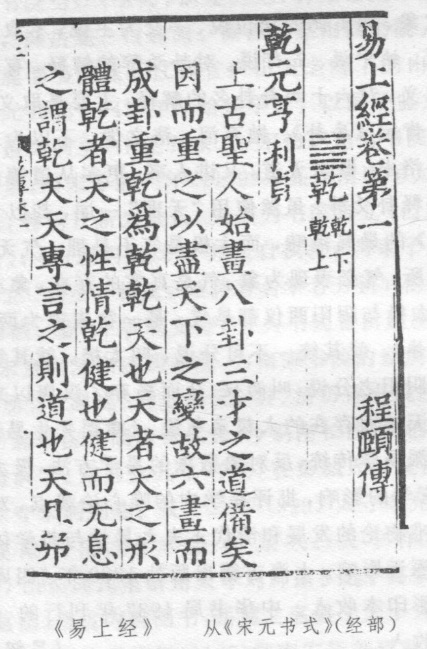 易上經卷第一 程頤傳
䷀乾 乾下
乾上
乾元亨利貞
上古聖人始畫八卦三才之道備矣
因而重之以盡天下之變故六畫而
成卦重乾爲乾乾天也天者天之形
體乾者天之性情乾健也健而无息
之謂乾夫天專言之則道也天且弗
《易上经》 从《宋元书式》(经部)